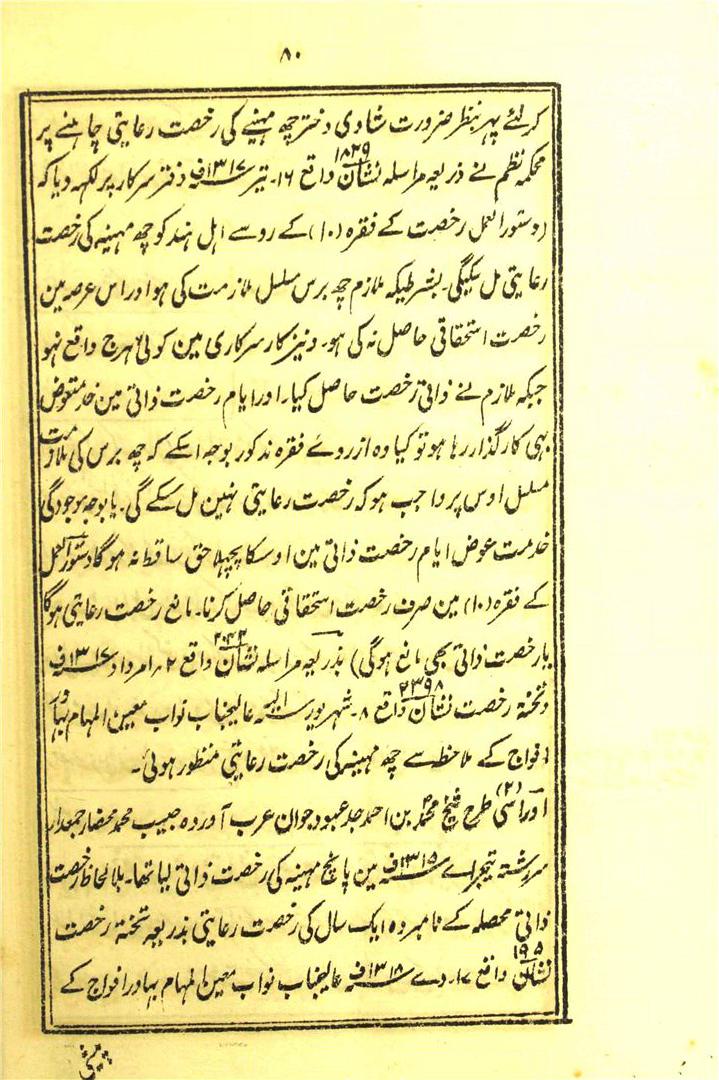 ۸۰
کرلئے پہر بنظر ضرورت شادی دختر چھ مہینے کی رخصت رعایتی چاہنے پر
محکمہ نظم نے ذریعہ مراسلہ نشان ۱۸۲۹ واقع ۱۶۔ تیر ۱۳۱۷ف دفتر سرکار پر لکہہ دیا کہ
(دستور العمل رخصت کے فقرہ (۱۰) کے رو سے اہل ہند کو چھ مہینہ کی رخصت
رعایتی مل سکیگی۔ بشرطیکہ ملازم چھ برس مسلسل ملازمت کی ہو اور اس عرصہ مین
رخصت استحقاقی حاصل نہ کی ہو۔ ونیز کار سرکاری مین کوئی ہرج واقع نہو
جبکہ ملازم نے ذاتی رخصت حاصل کیا۔ اور ایام رخصت ذاتی مین خدمتعوض
بہی کارگذار رہا ہو تو کیا وہ از روے فقرہ مذکور بوجہ اسکے کہ چھ برس کی ملازمت
مسلسل اوس پر واجب ہو کہ رخصت رعایتی نہین مل سکے گی۔ یا بوجہ موجودگی
خدمت عوض ایام رخصت ذاتی مین اوسکا پچہلا حق ساقط نہ ہوگا دستور العمل
کے فقرہ (۱۰) مین صرف رخصت استحقاقی حاصل کرنا۔ مانع رخصت رعایتی ہوگا
یا رخصت ذاتی بھی مانع ہوگی) بذریعہ مراسلہ نشان ۲۰۴۳ واقع ۲؍ امرداد ۱۳۱۷ف
وتختہ رخصت نشان ۲۳۹۸ واقع ۸۔ شہریور سنہ الیہ عالیجناب نواب معین المہام بہادر
افواج کے ملاحظہ سے چھ مہینہ کی رخصت رعایتی منظور ہوئی۔
(۲) اور اسی طرح شیخ محمد بن احمد جد عبود جوان عرب آوردہ حبیب محمد محضار جمعدار
سررشتہ تیجراے ۱۳۱۵ف مین پانچ مہینہ کی رخصت ذاتی لیا تھا۔ بلا لحاظ رخصت
ذاتی محصلہ کے نامبردہ ایک سال کی رخصت رعایتی بذریعہ تختہ رخصت
نشان ۱۹۵ واقع ۱۷۔ دے ۱۳۱۸ف عالیجناب نواب معین المہام بہادر افواج کے